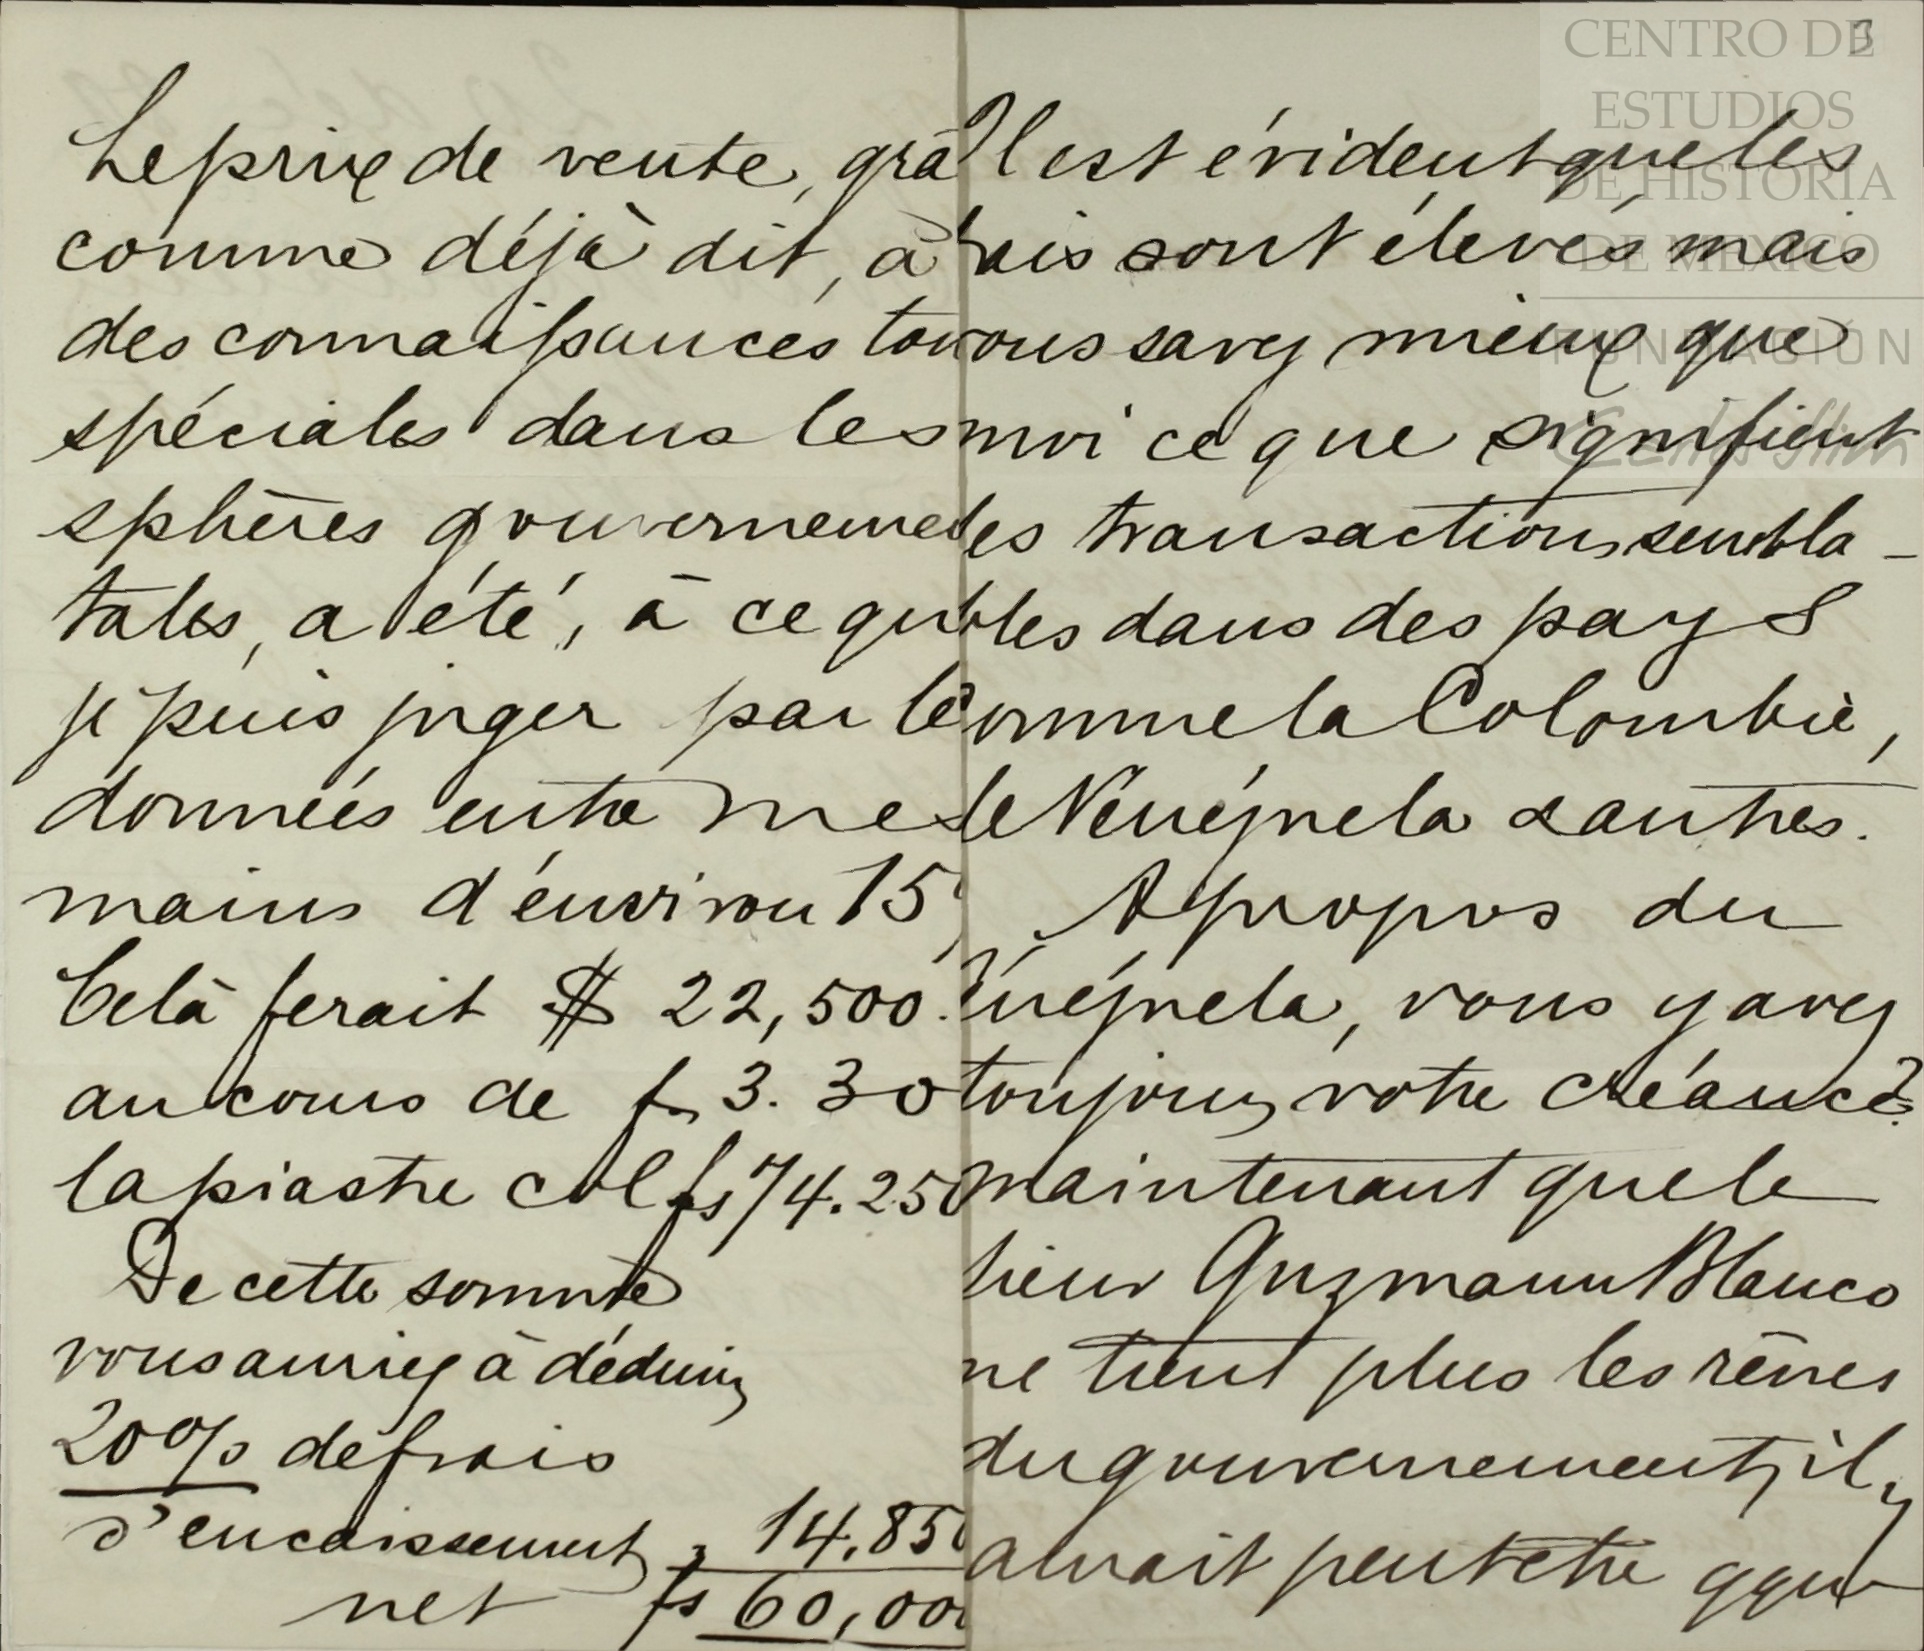 Le prix de vente, grâ
comme déjà dit, à
des connaissances tou
spéciales dans les
sphères gouverneme
tales, a été, à ce qu
je puis juger par le
données entre mes
mains d'environ 15
Celà ferait $ 22,500.
au cours de fs 3.30
la piastre col fs 74.250
De cette somme
vous auriez à déduire
20% de frais
d'encaissement " 14.850
net fs 60,000
3
Il est évident que les
frais sont élevés mais
vous savez mieux que
moi ce que signifient
les transactions sembla-
bles dans des pays
comme la Colombie,
le Vénézuela & autres.
A propos du
Vénézuela, vous y avez
toujours votre créance?
maintenant que le
sieur Guzmann Blanco
ne tient plus les rênes
du gouvernement, il y
aurait peut etre qque
CENTRO DE
ESTUDIOS
DE HISTORIA
DE MEXICO
FUNDACIÓN
Carlos Slim